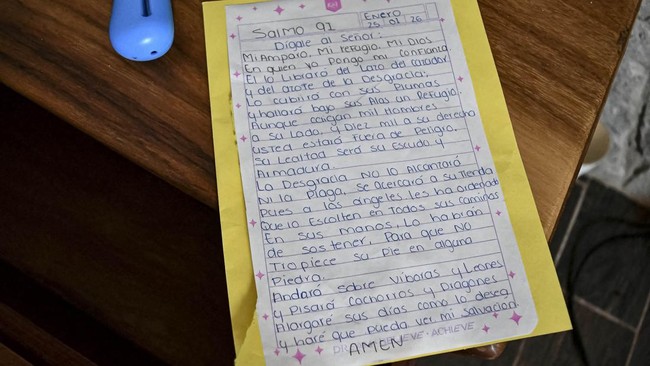 Salmo 91
Enero
25 al 26
Digale al Señor:
Mi Amparo, Mi refugio, Mi Dios
En quien yo Pongo mi confianza
El lo Librará del Lazo del cazador
y del azote de la Desgracia;
Lo cubrirá con sus Plumas
y hallará bajo sus Alas un Refugio.
Aunque caigan mil Hombres
a su Lado, y Diez mil a su derecha
usted Estará Fuera de Peligro.
Su Lealtad será su Escudo y
Armadura.
La Desgracia No lo Alcantará
Ni la Plaga, se Acercará a su Tienda
Pues a los ángeles les ha ordenado
Que lo Escolten en Todos sus caminos
En sus manos, Lo habran
de sostener, Para que No
Tropiece su Pie en alguna
Piedra.
Andará sobre Viboras y Leones
y Pisará Cachorros y Dragones
Alargaré sus dias como lo desea
y haré que Pueda ver mi salvación
AMEN
ACHIEVE